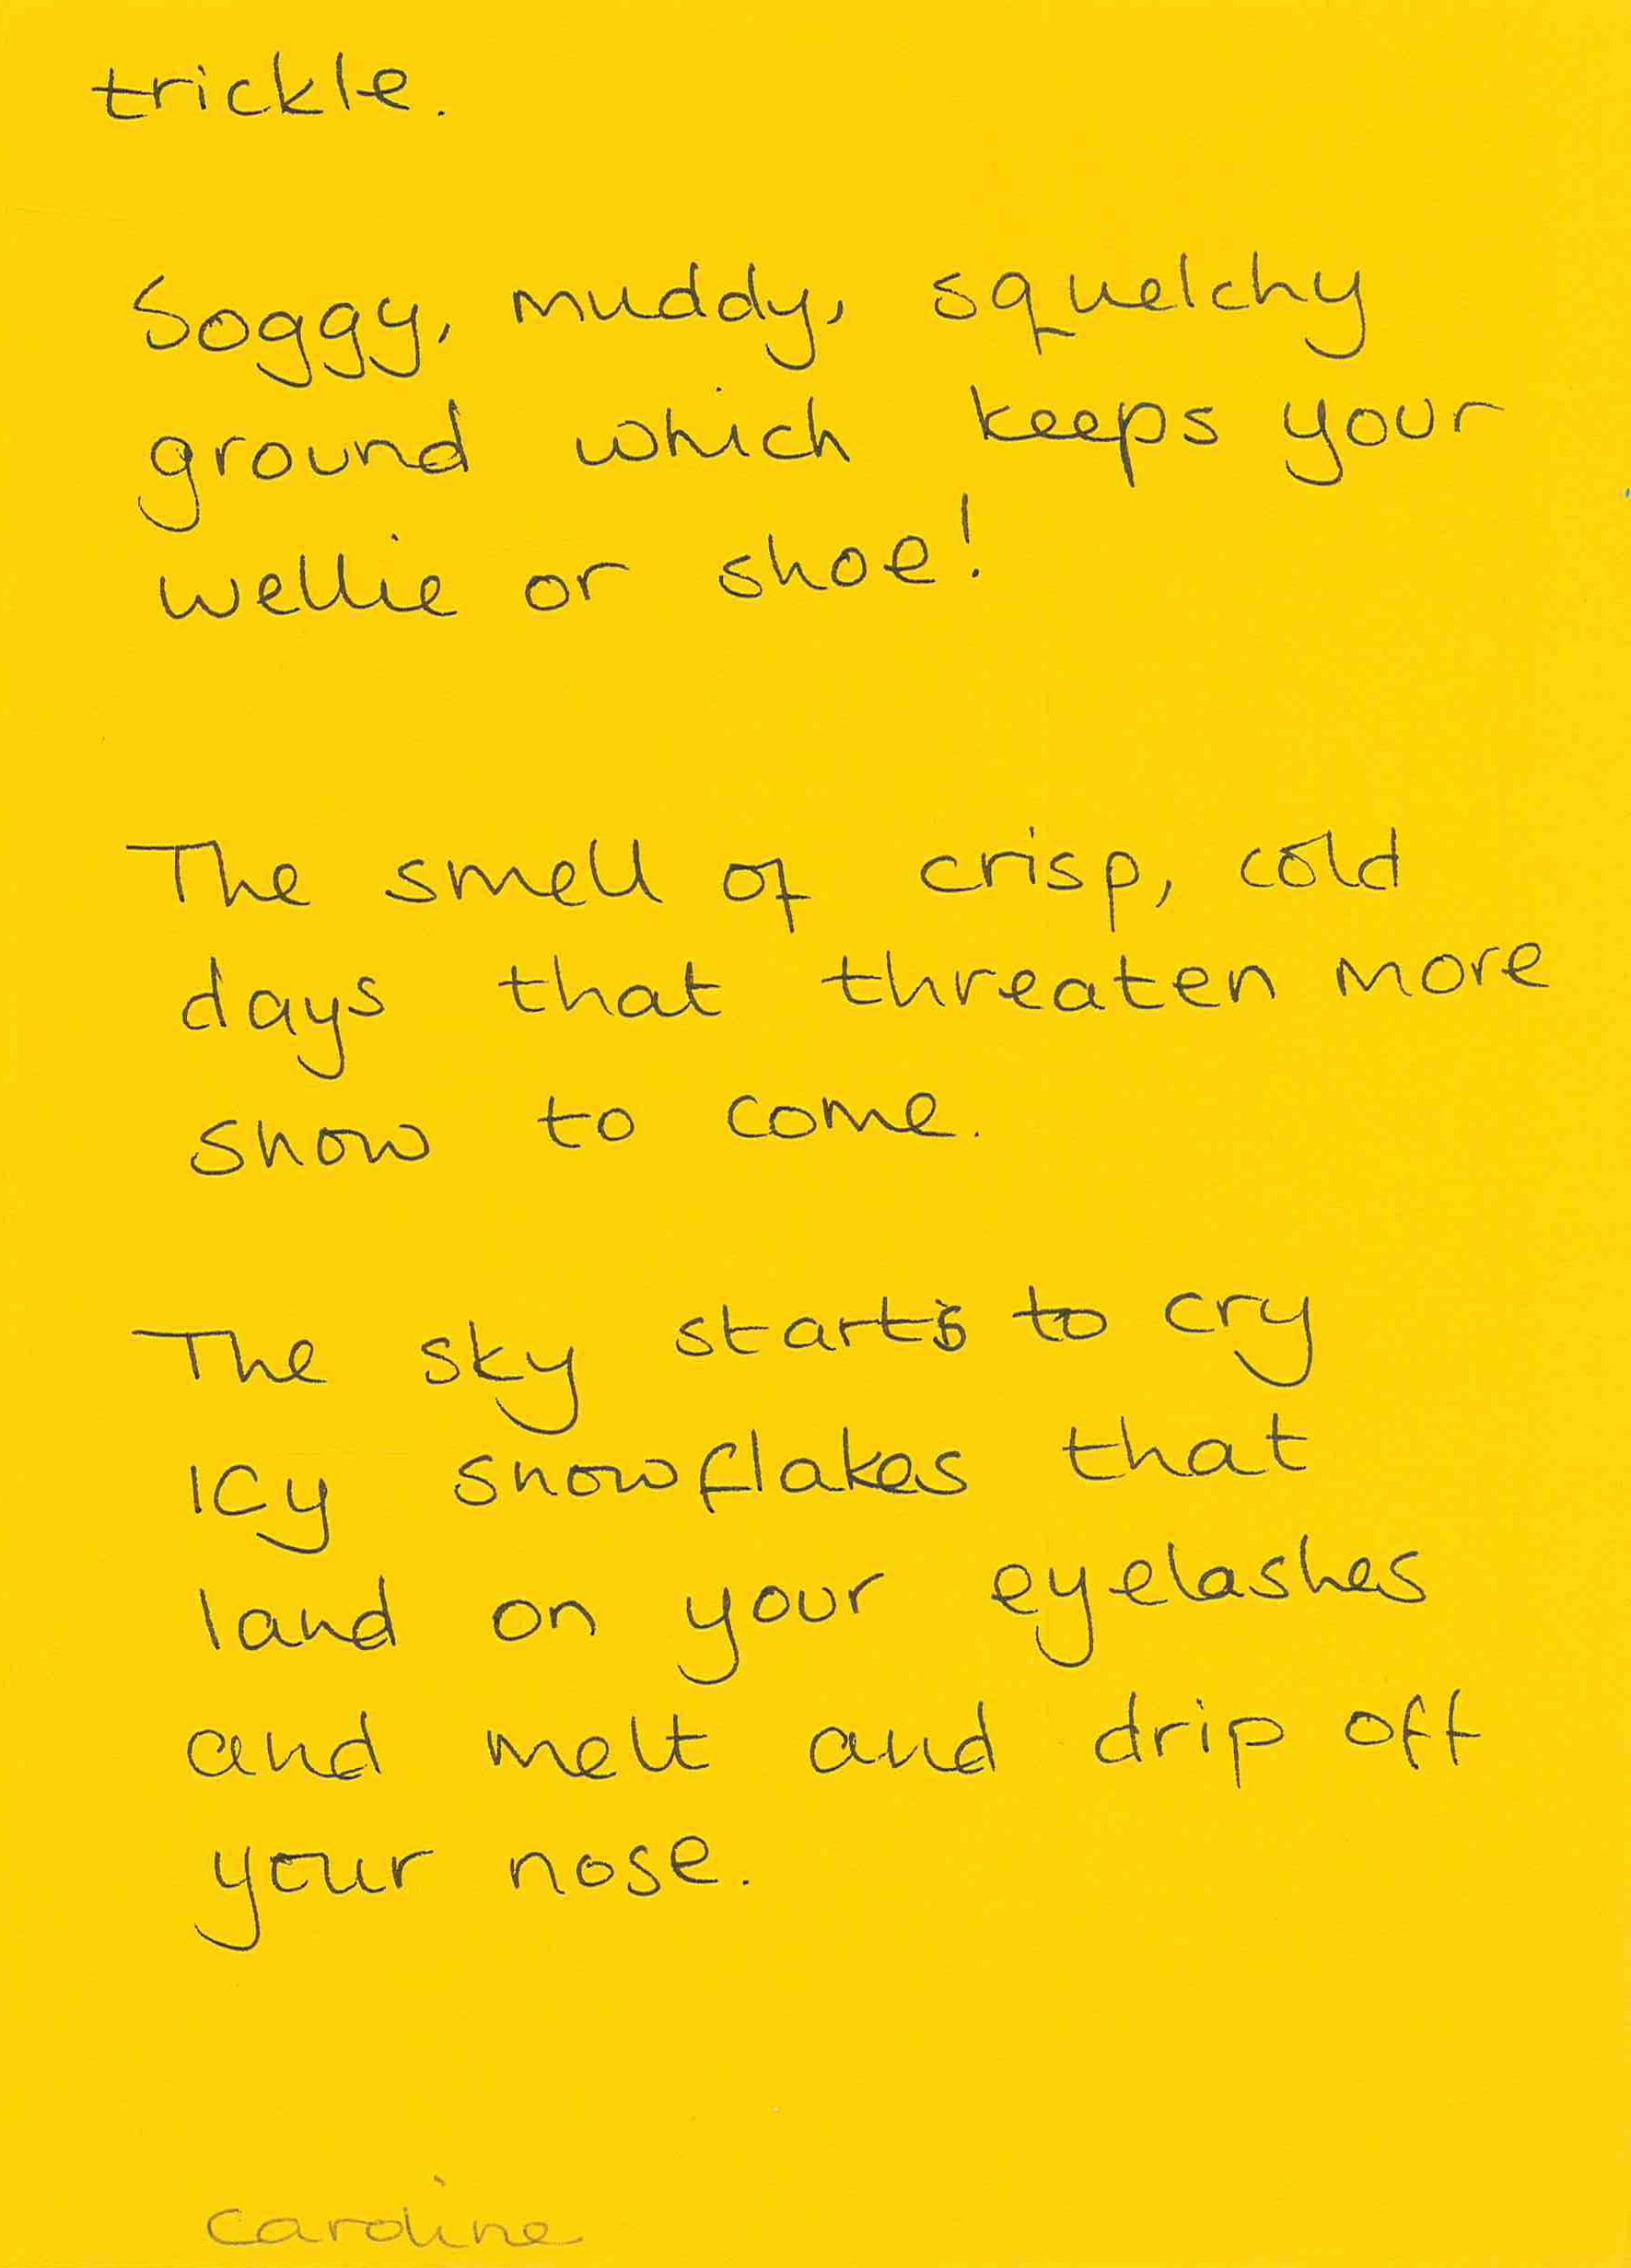 trickle.
Soggy, muddy, squelchy
ground which keeps your
wellie or shoe!
The smell of crisp, cold
days that threaten more
snow to come.
The sky starts to cry
icy snowflakes that
land on your eyelashes
and melt and drip off
your nose.
Caroline